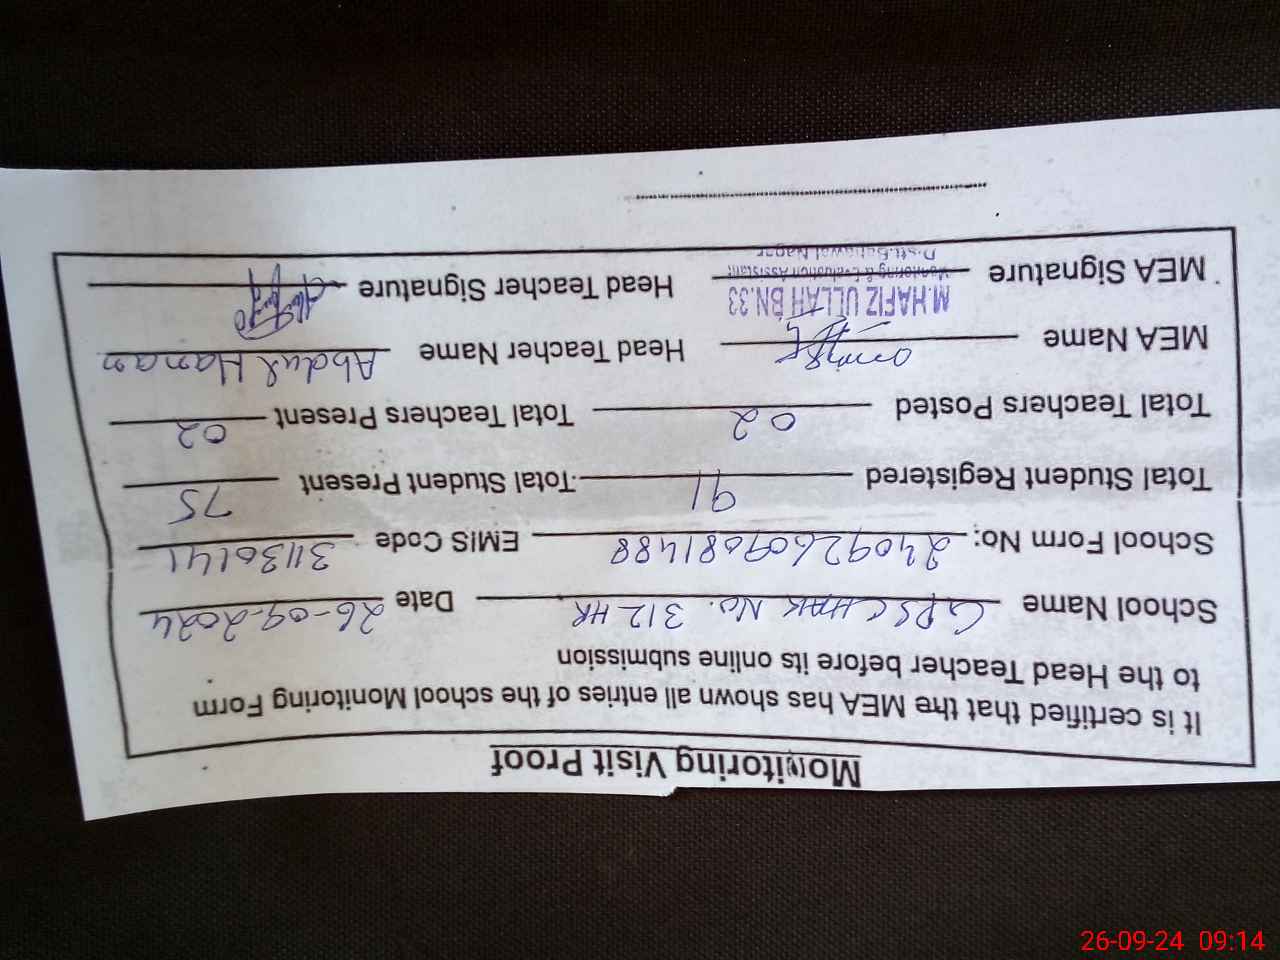 Monitoring Visit Proof
It is certified that the MEA has shown all entries of the school Monitoring Form
to the Head Teacher before its online submission
School Name GPS CHAK No. 312 HR Date 26-09-2024
School Form No: 24092609081488 EMIS Code 31130141
Total Student Registered 91 Total Student Present 75
Total Teachers Posted 02 Total Teachers Present 02
MEA Name Head Teacher Name Abdul Hanan
MEA Signature M.HAFIZ ULLAH BN.33 Head Teacher Signature
Monitoring & Evaluation Assistant
Distt. Bahawal Nagar
26-09-24 09:14